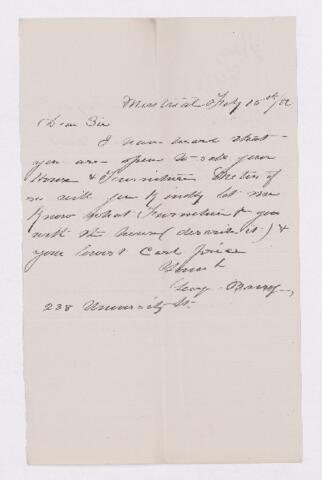 Montreal July 15th/82
Dear Sir
I have heard that
you are open to sell your
House & Furniture
so will you kindly let me
know what Furniture &
with the house (describe it) &
your lowest Cash price
George
238 University St.